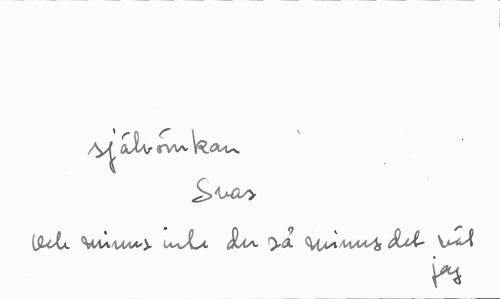 självömkan
Svar
och minns inte du så minns det väl
jag